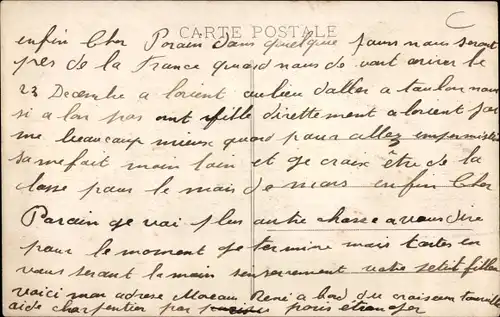 CARTE POSTALE
enfin Cher Parain dans quelque jours nous seront
pres de la France quand nous de vont ariver le
23 Decembre a lorient aulieu daller a toulon nous
si a lon pas ont fille direttement a lorient jai
me beaucoup mieux quand pour allez enpermission
sa me fait moin loin et ge craix être de la
classe pour le mois de mars enfin Cher
Parain ge vai plus autre chosse a vous dire
pour le moment ge termine mais toutes en
vous serant la main senserement votre petit filleu
voici mon adrese Moreau René a bord du croiseur
aide charpentier par pour étranger